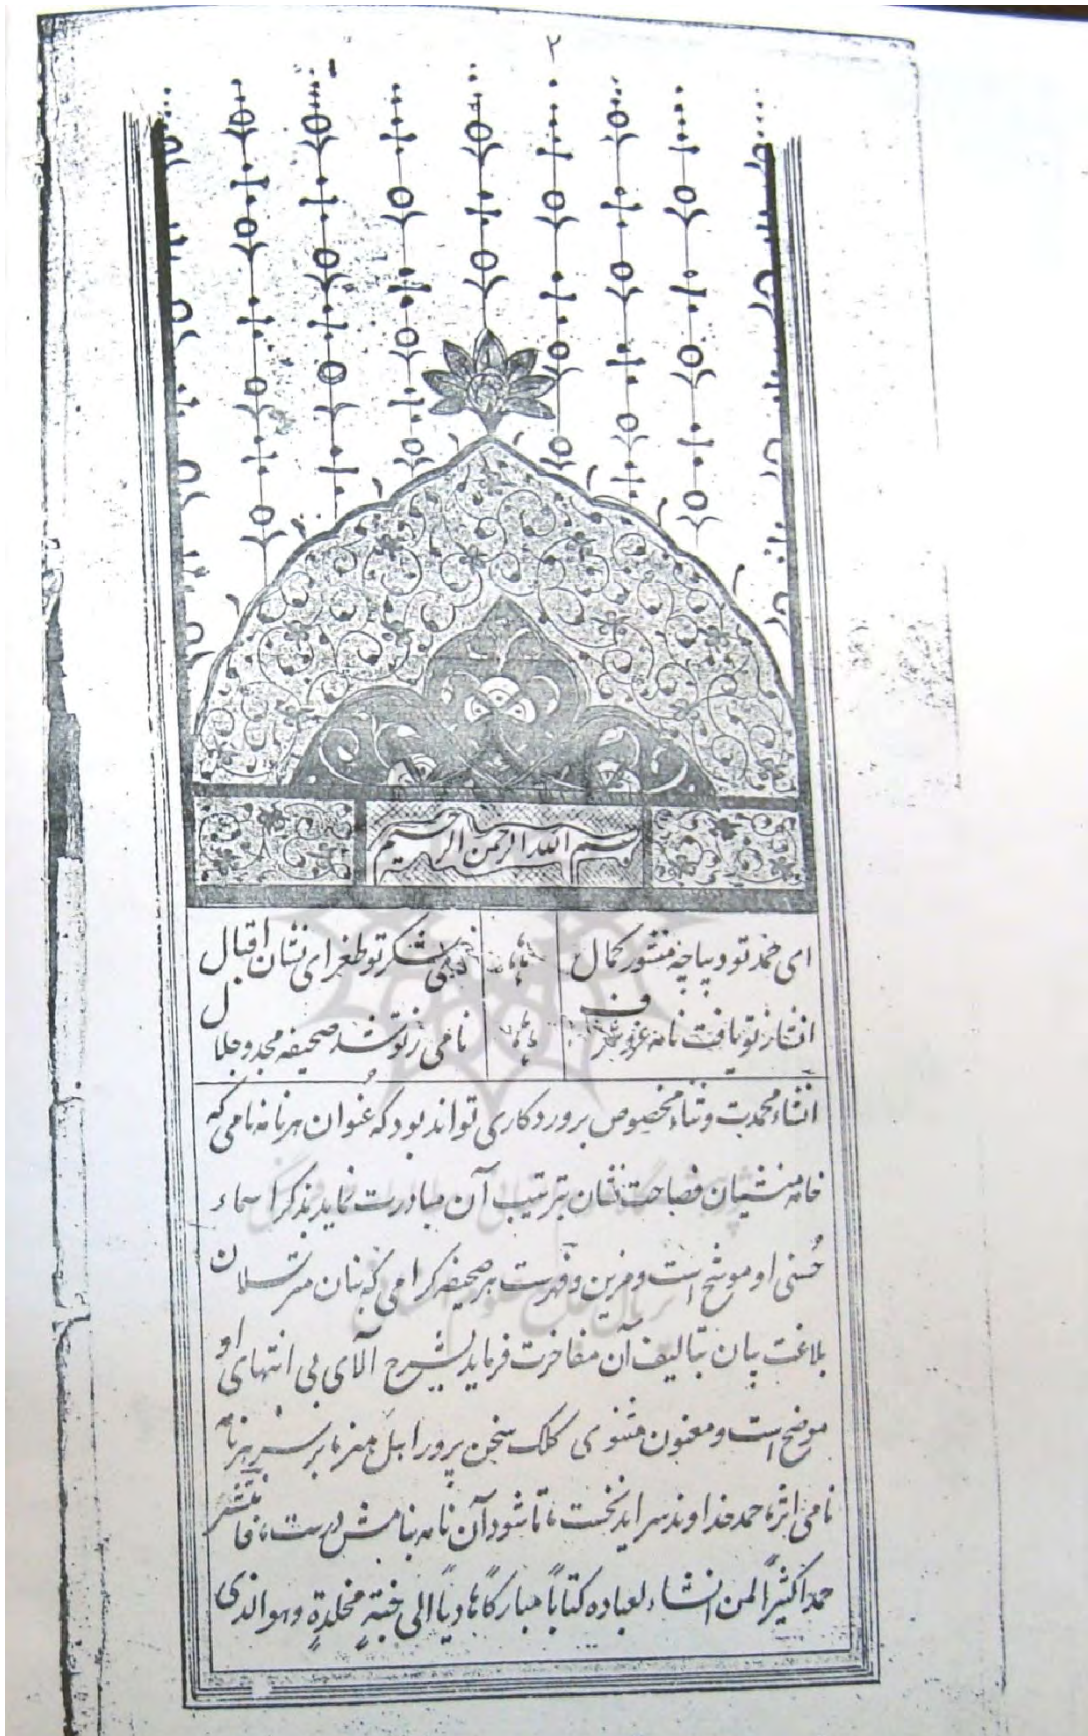 ۲
بسم الله الرحمن الرحیم
ای حمد تو دیباچه منشور کمال وی شکر تو طغرای نشان اقبال
انشا ز تو یافت نامه عز و شرف نامی ز تو شد صحیفه مجد و جلال
انشاء محمدت و ثناء مخصوص پروردکاری تواند بود که عُنوان هر نامه نامی که
خامه منشیان فصاحت نشان بترتیب آن مبادرت نماید بذکر اسماء
حُسنی او موشح است و مزین و فهرست هر صحیفه کرامی که بنان مترسلان
بلاغت بیان بتالیف آن مفاخرت فرماید بشرح آلای بی انتهای او
موضح است و معنون مثنوی کلک سخن پرور اهل هنر بر سر هر نامه
نامی اثر حمد خداوند سراید نخست تا شود آن نامه بنامش درست
حمداً کثیراً لمن انشاء لعباده کتاباً مبارکاً هادیاً الی جنةٍ مخلدةٍ و هو الذی